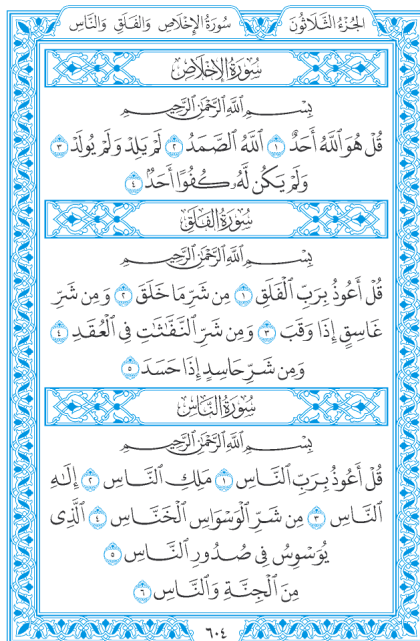 سُورَةُ الإِخْلَاصِ وَالفَلَقِ وَالنَّاسِ
الجُزْءُ الثَّلَاثُونَ
سُورَةُ الإِخْلَاصِ
بِسْمِ اللَّهِ الرَّحْمَٰنِ الرَّحِيمِ
قُلْ هُوَ اللَّهُ أَحَدٌ ١ اللَّهُ الصَّمَدُ ٢ لَمْ يَلِدْ وَلَمْ يُولَدْ ٣
وَلَمْ يَكُن لَّهُۥ كُفُوًا أَحَدٌۢ ٤
سُورَةُ الفَلَقِ
بِسْمِ اللَّهِ الرَّحْمَٰنِ الرَّحِيمِ
قُلْ أَعُوذُ بِرَبِّ الْفَلَقِ ١ مِن شَرِّ مَا خَلَقَ ٢ وَمِن شَرِّ
غَاسِقٍ إِذَا وَقَبَ ٣ وَمِن شَرِّ النَّفَّٰثَٰتِ فِي الْعُقَدِ ٤
وَمِن شَرِّ حَاسِدٍ إِذَا حَسَدَ ٥
سُورَةُ النَّاسِ
بِسْمِ اللَّهِ الرَّحْمَٰنِ الرَّحِيمِ
قُلْ أَعُوذُ بِرَبِّ النَّاسِ ١ مَلِكِ النَّاسِ ٢ إِلَٰهِ
النَّاسِ ٣ مِن شَرِّ الْوَسْوَاسِ الْخَنَّاسِ ٤ الَّذِي
يُوَسْوِسُ فِي صُدُورِ النَّاسِ ٥
مِنَ الْجِنَّةِ وَالنَّاسِ ٦
٦٠٤